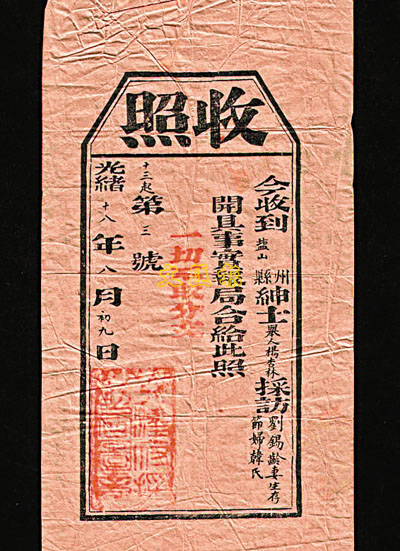 收照
今收到塩山州縣紳士舉人楊杏林採訪劉錫齡妻生存節婦韓氏
開具事實局合給此照
一切取分文
十三起第三號
光緒十八年八月初九日